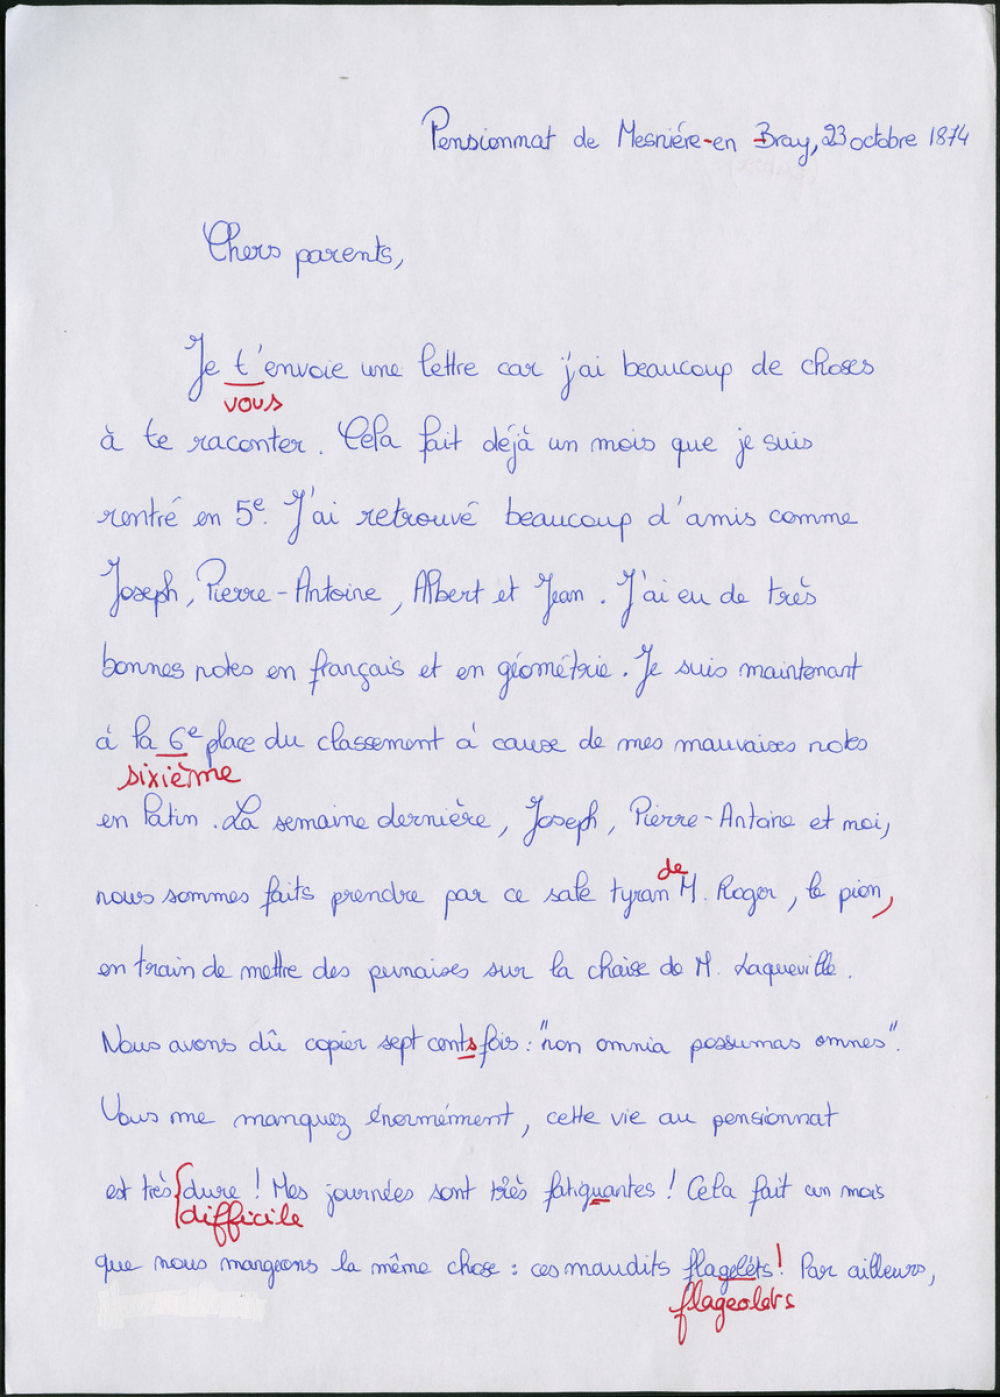 Pensionnat de Mesniére-en Bray, 23 octobre 1874
Chers parents,
Je t'envoie une lettre car j'ai beaucoup de choses
vous
à te raconter. Cela fait déjà un mois que je suis
rentré en 5e. J'ai retrouvé beaucoup d'amis comme
Joseph, Pierre-Antoine, Albert et Jean. J'ai eu de très
bonnes notes en français et en géométrie. Je suis maintenant
à la 6e place du classement à cause de mes mauvaises notes
sixième
en latin. La semaine dernière, Joseph, Pierre-Antoine et moi,
de
nous sommes faits prendre par ce sale tyran M. Roger, le pion,
en train de mettre des punaises sur la chaise de M. Laqueville.
Nous avons dû copier sept cents fois : "non omnia possumas omnes".
Vous me manquez énormément, cette vie au pensionnat
est très dure ! Mes journées sont très fatiguantes ! Cela fait un mois
difficile
que nous mangeons la même chose : ces maudits flageléts ! Par ailleurs,
flageolets